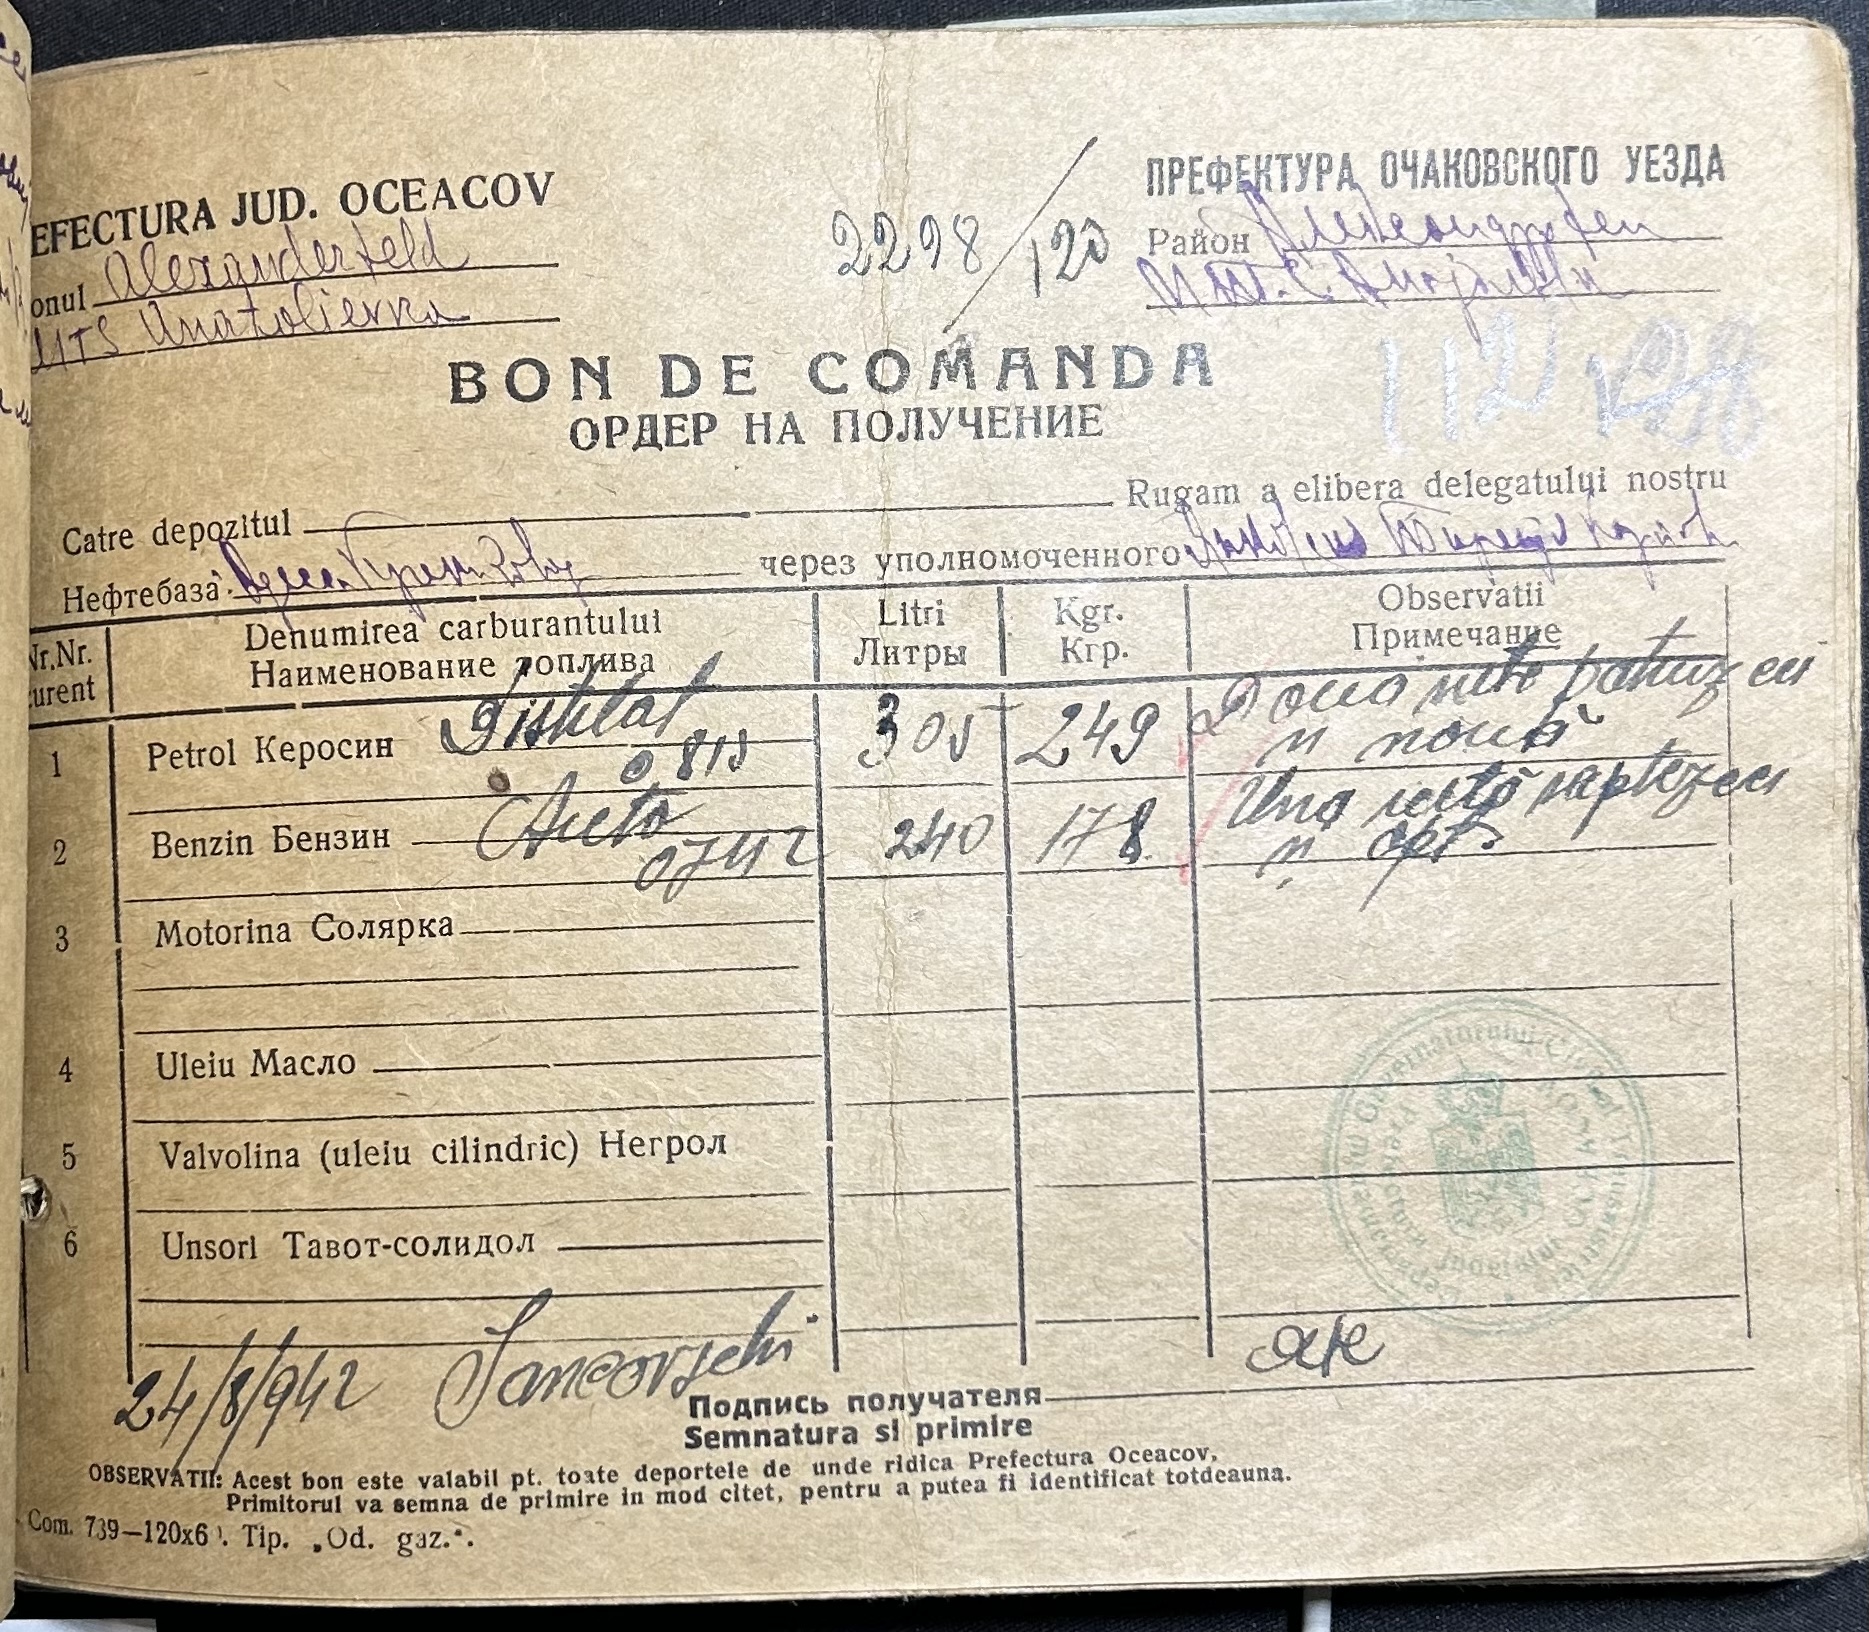 EFECTURA JUD. OCEACOV
onul Alexanderfeld
MTS Anatolievca
2298/120
ПРЕФЕКТУРА ОЧАКОВСКОГО УЕЗДА
Район
BON DE COMANDA
ОРДЕР НА ПОЛУЧЕНИЕ
1121
Catre depozitul Rugam a elibera delegatului nostru
Нефтебаза через уполномоченного
Nr.Nr. curent Denumirea carburantului Litri Kgr. Observatii
Наименование топлива Литры Кгр. Примечание
1 Petrol Керосин Distilat 0 815 305 249 Doua sute patruzeci
și nouă
2 Benzin Бензин Auto 0742 240 178 Una sută saptezeci
și opt
3 Motorina Солярка
4 Uleiu Масло
5 Valvolina (uleiu cilindric) Негрол
6 Unsori Тавот-солидол
Guvernamantului Civil al Transnistriei
24/8/942
Подпись получателя
Semnatura si primire
OBSERVATII: Acest bon este valabil pt. toate deportele de unde ridica Prefectura Oceacov,
Primitorul va semna de primire in mod citet, pentru a putea fi identificat totdeauna.
Com. 739—120x6 . Tip. „Od. gaz.“.